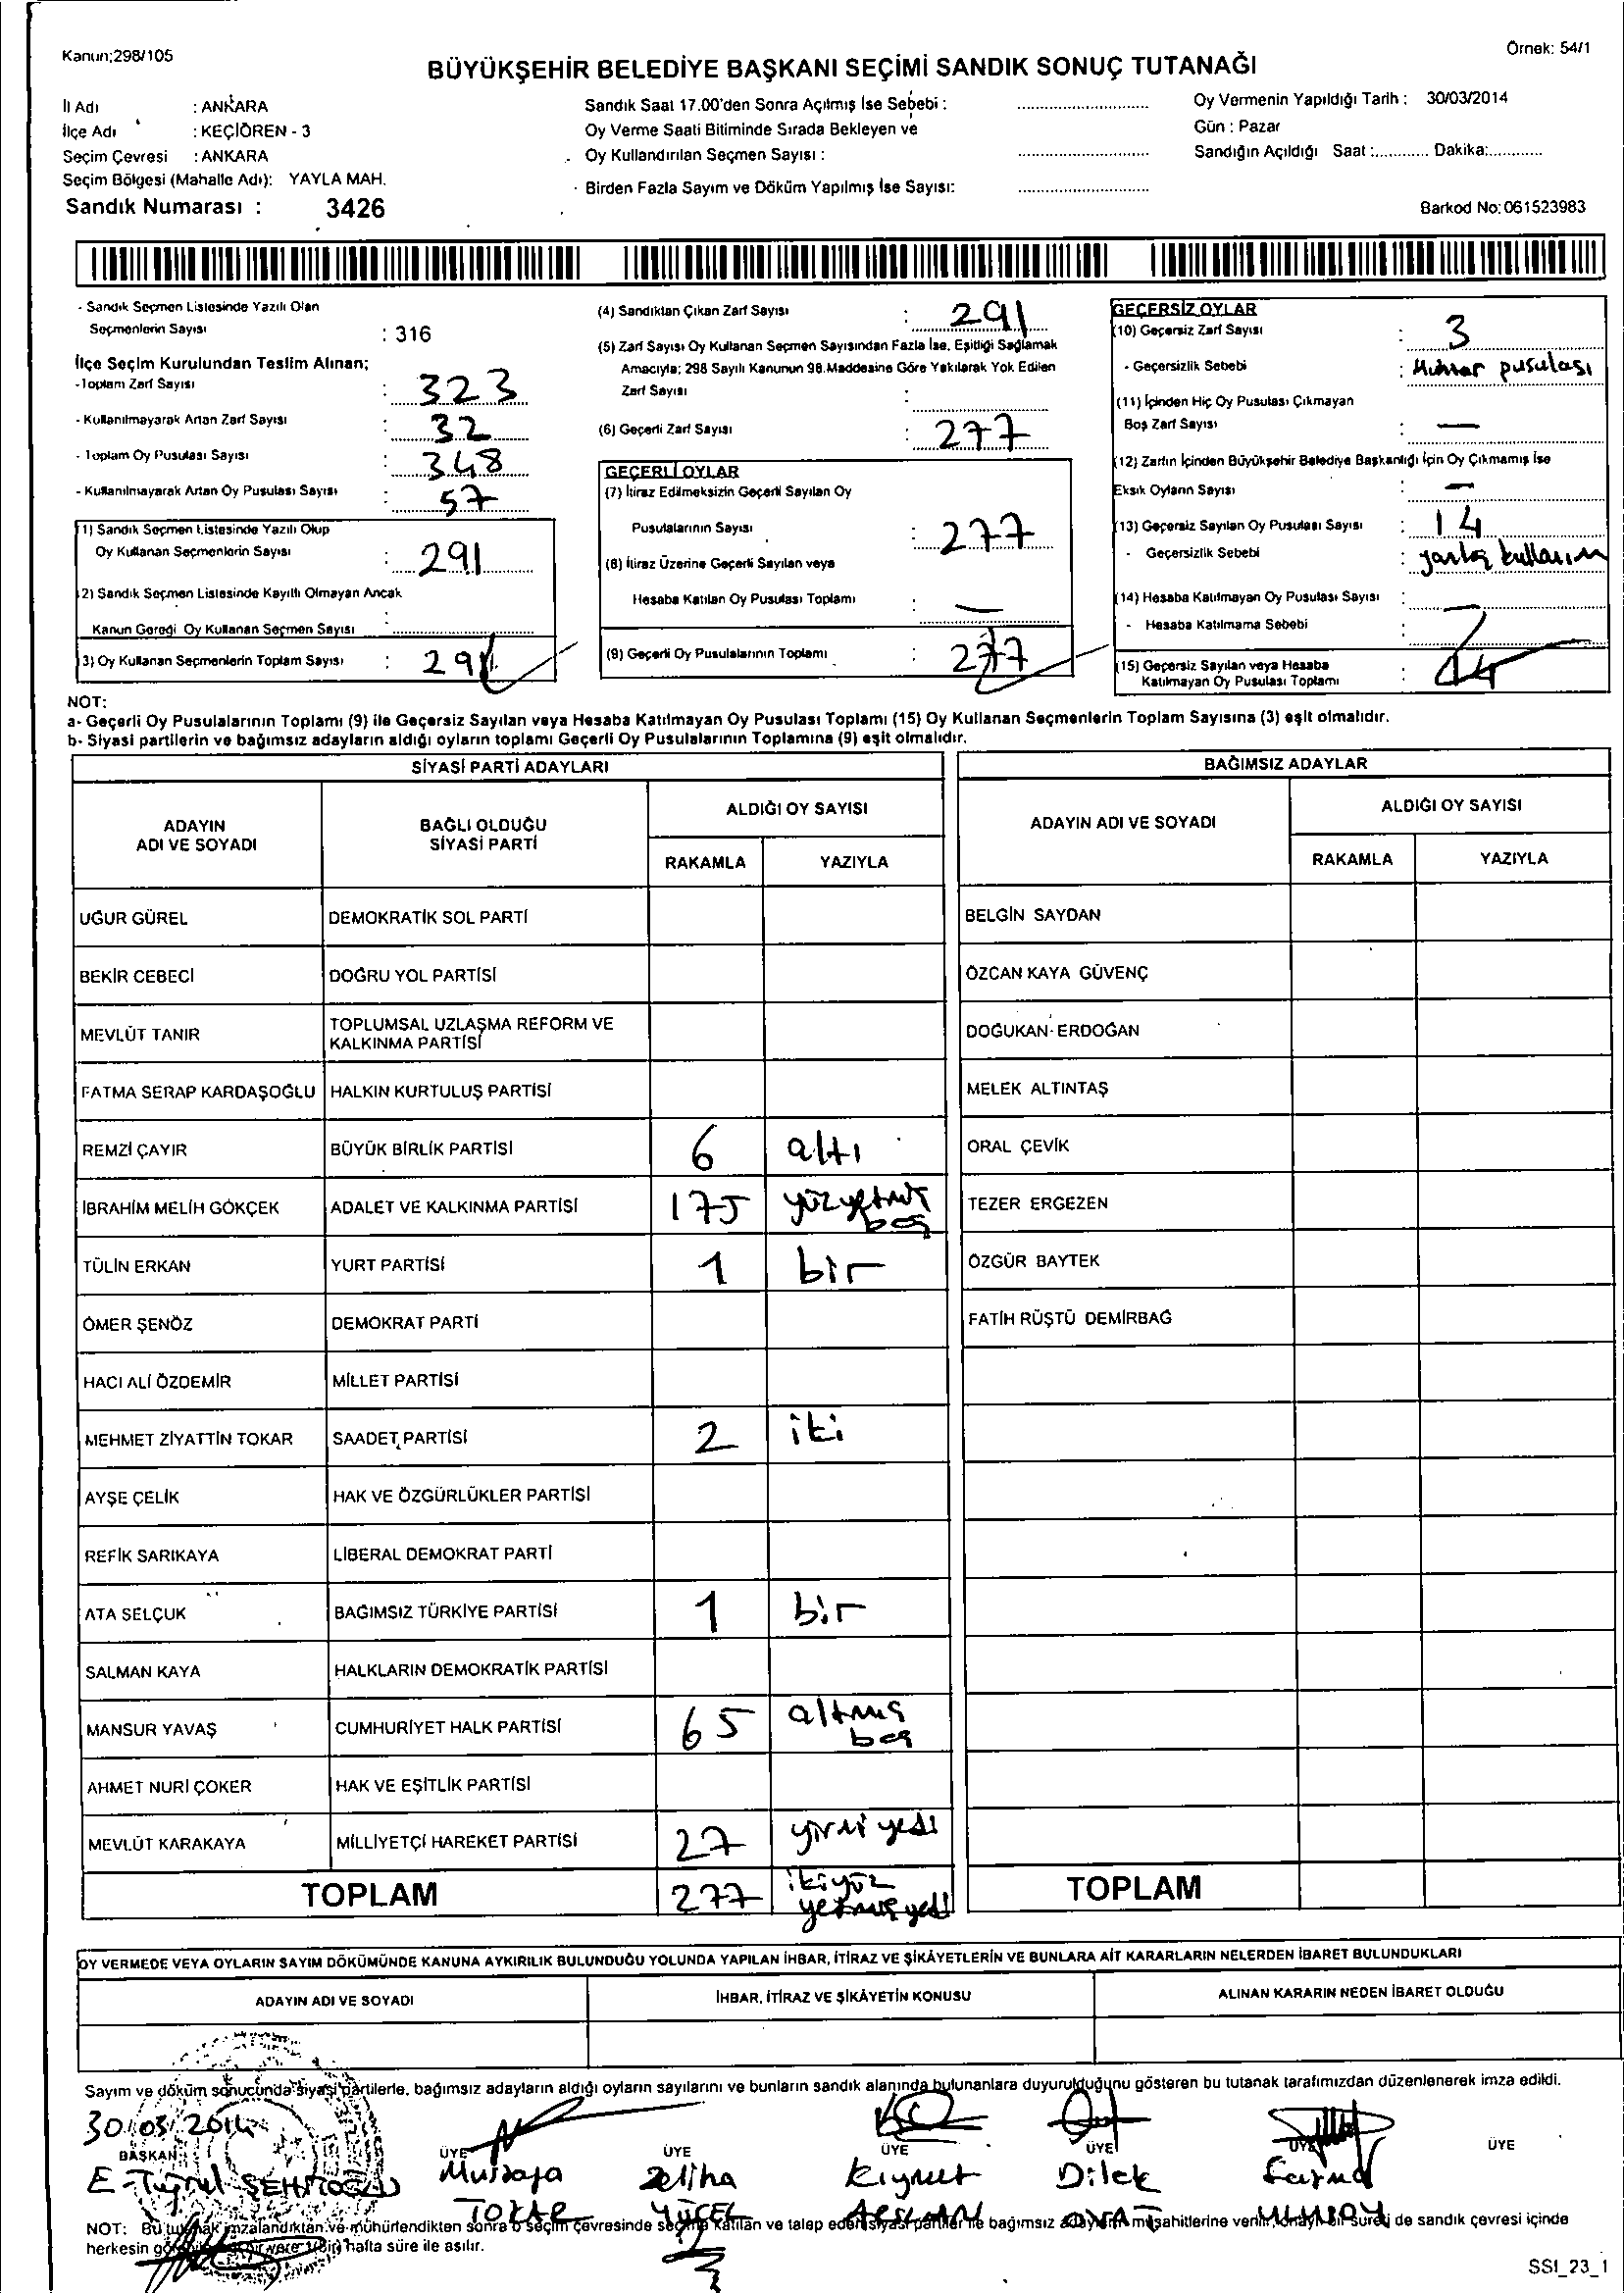 Kanun;298/105
Örnek: 54/1
BÜYÜKŞEHİR BELEDİYE BAŞKANI SEÇİMİ SANDIK SONUÇ TUTANAĞI
İl Adı : ANKARA
İlçe Adı : KEÇİÖREN - 3
Seçim Çevresi : ANKARA
Seçim Bölgesi (Mahalle Adı): YAYLA MAH.
Sandık Numarası : 3426
Sandık Saat 17.00'den Sonra Açılmış İse Sebebi :
Oy Verme Saati Bitiminde Sırada Bekleyen ve
Oy Kullandırılan Seçmen Sayısı :
Birden Fazla Sayım ve Döküm Yapılmış İse Sayısı:
Oy Vermenin Yapıldığı Tarih : 30/03/2014
Gün : Pazar
Sandığın Açıldığı Saat :............ Dakika:............
Barkod No: 061523983
- Sandık Seçmen Listesinde Yazılı Olan
Seçmenlerin Sayısı : 316
İlçe Seçim Kurulundan Teslim Alınan;
- Toplam Zarf Sayısı : 323
- Kullanılmayarak Artan Zarf Sayısı : 32
- Toplam Oy Pusulası Sayısı : 348
- Kullanılmayarak Artan Oy Pusulası Sayısı : 57
(1) Sandık Seçmen Listesinde Yazılı Olup
Oy Kullanan Seçmenlerin Sayısı : 291
(2) Sandık Seçmen Listesinde Kayıtlı Olmayan Ancak
Kanun Gereği Oy Kullanan Seçmen Sayısı :
(3) Oy Kullanan Seçmenlerin Toplam Sayısı : 291
(4) Sandıktan Çıkan Zarf Sayısı : 291
(5) Zarf Sayısı Oy Kullanan Seçmen Sayısından Fazla İse, Eşitliği Sağlamak
Amacıyla; 298 Sayılı Kanunun 98.Maddesine Göre Yakılarak Yok Edilen
Zarf Sayısı :
(6) Geçerli Zarf Sayısı : 277
GEÇERLİ OYLAR
(7) İtiraz Edilmeksizin Geçerli Sayılan Oy
Pusulalarının Sayısı : 277
(8) İtiraz Üzerine Geçerli Sayılan veya
Hesaba Katılan Oy Pusulası Toplamı : —
(9) Geçerli Oy Pusulalarının Toplamı : 277
GEÇERSİZ OYLAR
(10) Geçersiz Zarf Sayısı : 3
- Geçersizlik Sebebi : Muhtar pusulası
(11) İçinden Hiç Oy Pusulası Çıkmayan
Boş Zarf Sayısı : —
(12) Zarfın İçinden Büyükşehir Belediye Başkanlığı İçin Oy Çıkmamış İse
Eksik Oyların Sayısı : —
(13) Geçersiz Sayılan Oy Pusulası Sayısı : 14
- Geçersizlik Sebebi : yanlış kullanım
(14) Hesaba Katılmayan Oy Pusulası Sayısı : —
- Hesaba Katılmama Sebebi :
(15) Geçersiz Sayılan veya Hesaba
Katılmayan Oy Pusulası Toplamı : 14
NOT:
a- Geçerli Oy Pusulalarının Toplamı (9) ile Geçersiz Sayılan veya Hesaba Katılmayan Oy Pusulası Toplamı (15) Oy Kullanan Seçmenlerin Toplam Sayısına (3) eşit olmalıdır.
b- Siyasi partilerin ve bağımsız adayların aldığı oyların toplamı Geçerli Oy Pusulalarının Toplamına (9) eşit olmalıdır.
SİYASİ PARTİ ADAYLARI
ADAYIN ADI VE SOYADI
BAĞLI OLDUĞU SİYASİ PARTİ
ALDIĞI OY SAYISI
RAKAMLA YAZIYLA
UĞUR GÜREL DEMOKRATİK SOL PARTİ
BEKİR CEBECİ DOĞRU YOL PARTİSİ
MEVLÜT TANIR TOPLUMSAL UZLAŞMA REFORM VE KALKINMA PARTİSİ
FATMA SERAP KARDAŞOĞLU HALKIN KURTULUŞ PARTİSİ
REMZİ ÇAYIR BÜYÜK BİRLİK PARTİSİ 6 altı
İBRAHİM MELİH GÖKÇEK ADALET VE KALKINMA PARTİSİ 175 yüzyetmiş beş
TÜLİN ERKAN YURT PARTİSİ 1 bir
ÖMER ŞENÖZ DEMOKRAT PARTİ
HACI ALİ ÖZDEMİR MİLLET PARTİSİ
MEHMET ZİYATTİN TOKAR SAADET PARTİSİ 2 iki
AYŞE ÇELİK HAK VE ÖZGÜRLÜKLER PARTİSİ
REFİK SARIKAYA LİBERAL DEMOKRAT PARTİ
ATA SELÇUK BAĞIMSIZ TÜRKİYE PARTİSİ 1 bir
SALMAN KAYA HALKLARIN DEMOKRATİK PARTİSİ
MANSUR YAVAŞ CUMHURİYET HALK PARTİSİ 65 altmış beş
AHMET NURİ ÇOKER HAK VE EŞİTLİK PARTİSİ
MEVLÜT KARAKAYA MİLLİYETÇİ HAREKET PARTİSİ 27 yirmi yedi
TOPLAM 277 ikiyüz yetmişyedi
BAĞIMSIZ ADAYLAR
ADAYIN ADI VE SOYADI
ALDIĞI OY SAYISI
RAKAMLA YAZIYLA
BELGİN SAYDAN
ÖZCAN KAYA GÜVENÇ
DOĞUKAN ERDOĞAN
MELEK ALTINTAŞ
ORAL ÇEVİK
TEZER ERGEZEN
ÖZGÜR BAYTEK
FATİH RÜŞTÜ DEMİRBAĞ
TOPLAM
OY VERMEDE VEYA OYLARIN SAYIM DÖKÜMÜNDE KANUNA AYKIRILIK BULUNDUĞU YOLUNDA YAPILAN İHBAR, İTİRAZ VE ŞİKÂYETLERİN VE BUNLARA AİT KARARLARIN NELERDEN İBARET BULUNDUKLARI
ADAYIN ADI VE SOYADI İHBAR, İTİRAZ VE ŞİKÂYETİN KONUSU ALINAN KARARIN NEDEN İBARET OLDUĞU
Sayım ve döküm sonucunda siyasi partilerle, bağımsız adayların aldığı oyların sayılarını ve bunların sandık alanında bulunanlara duyurulduğunu gösteren bu tutanak tarafımızdan düzenlenerek imza edildi.
30/03/2014
BAŞKAN ÜYE ÜYE ÜYE ÜYE ÜYE ÜYE
E. Tuğrul Mustafa Zeliha Kıymet Dilek Fatma
TOKAR YÜCEL
NOT: Bu tutanak imzalandıktan ve mühürlendikten sonra o seçim çevresinde seçime katılan ve talep eden siyasi partiler ile bağımsız adayların müşahitlerine verilir, onaylı bir sureti de sandık çevresi içinde
herkesin hafta süre ile asılır.
SSI_23_1